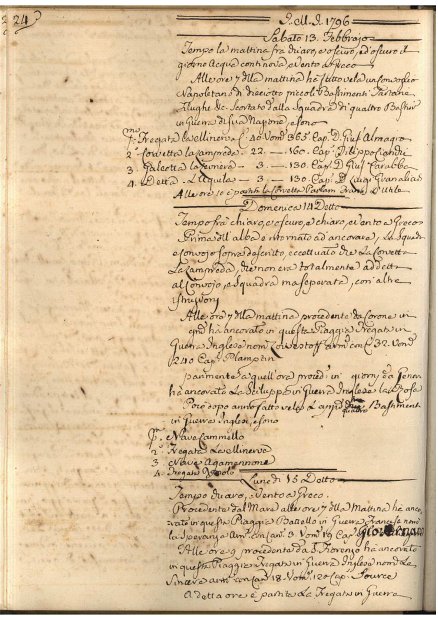 24
S. M. I. 1796
Sabato 13. Febbraio
Tempo la mattina fra chiaro, e oscuro, ed oscuro il
giorno Acqua continova e vento Greco
Alle ore 7 della mattina ha fatto vela un convoglio
Napoletano di diciotto piccoli Bastimenti Tartane
Filughe &c. Scortato dalla Squadra di quattro Bastim
in Guerra di sua Nazione, e sono
1. Fregata La Minerva C. 40 Uom. 365 Cap. D. Gius. Almagro
2. Corvetta La Lampreda 22. — 160. Cap. Filippo
3. Galeotta la — 3. — 130. Cap. D. Gius.
4. Detta L'Aquila — 3. — 130. Cap. D. Luigi Granalais
Alle ore 10 è partita la Corvetta Franc.
Domenica 14 Detto
Tempo fra chiaro, e oscuro, e chiaro, e vento Greco
Prima dell'albe è ritornato ad ancorare, La Squadr
e Convojo sopra descritto, eccettuato che La Corvetta
La Lampreda, che non era totalmente addetta
al Convojo, e Squadra ma separata, con altre
istruzioni
Alle ore 7 della mattina procedente da Corone in
giorni ha ancorato in questa Piaggia Fregata in
Guerra Inglese nom Lowestoff arm. con C. 32. Uom
240 Cap. Plamplin
parimente a quell'ore proced. in giorni da
ha ancorato La in Guerra Inglese la
Poco dopo anno fatto vela quattro Bastimenti
in Guerra Inglesi, e sono
1. Nave Cammello
2. Fregata La Minerva
3. Nave Agamennone
4. Fregata
Lunedì 15 Detto
Tempo chiaro, e Vento a Greco
Procedente dal Mare alle ore 7 della Mattina ha anco-
rato in questa Piaggia Batello in Guerra Francese nom
la Speranza Arm. con Can. 3. Uom 19 Cap. Gio:
Alle ore 9 procedente da S. Fiorenzo ha ancorato
in questa Piaggia Fregata in Guerra Inglese nom La
Sincere arm. con Can. 18 Uom. 120 Cap.
A detta ore è partita La Fregata in Guerra